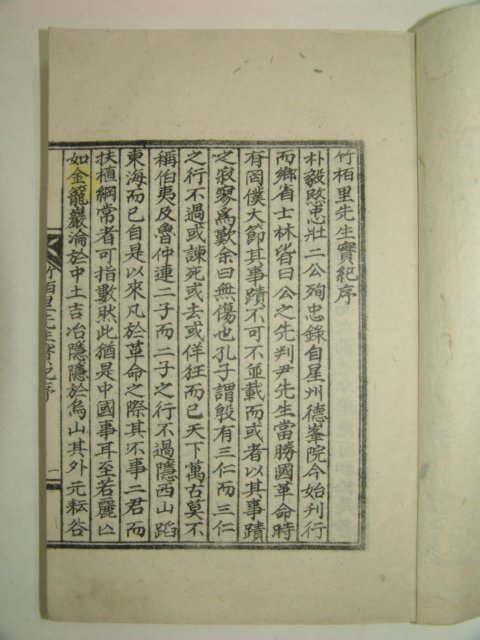 竹栢里先生實紀序
朴毅愍忠壯二公殉忠錄自星州德峯院今始刊行
而鄕省士林皆曰公之先判尹先生當勝國革命時
有罔僕大節其事蹟不可不並載而或者以其事蹟
之寂寥爲歎余曰無傷也孔子謂殷有三仁而三仁
之行不過或諫死或去或佯狂而已天下萬古莫不
稱伯夷及魯仲連二子而二子之行不過隱西山蹈
東海而已自是以來凡於革命之際其不事二君而
扶植綱常者可指數然此猶是中國事耳至若麗亡
如金籠巖淪於中土吉冶隱隱於烏山其外元耘谷
竹栢里先生實紀序
一